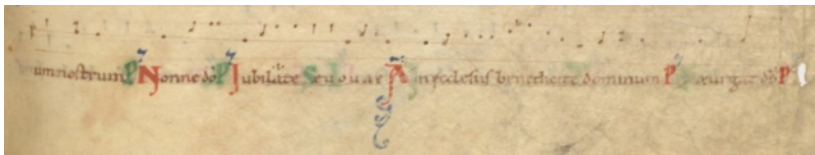 um nostrum P Nonne dō P Jubilate Seuouae A In ecclesiis benedicite dominum P Exurgat dō P